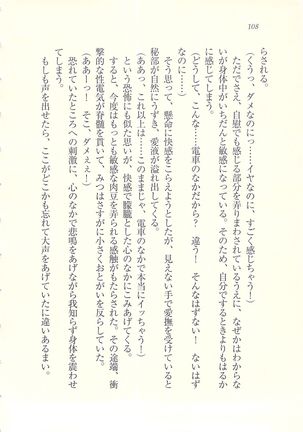 108
らされる。
(くうっ、ダメなのにっ……イヤなのに、すごく感じちゃう!)
ただでさえ、自慰でも感じる部分を弄りまわされているうえに、なぜかはわからな
いが身体中がいちだんと敏感になっている。おかげで、自分でするときよりもはるか
に感じてしまう。
(どうして、こんな……電車のなかだから? 違う! そんなはずない! ないはず
なのに……)
そう思って、懸命に快感をこらえようとしたが、見えない手で愛撫を受けていると
秘部が自然にうずき、愛液が溢れ出してくる。
(ああっ、これ以上は……このままじゃ、電車のなかで本当にイッちゃう!)
という恐怖にも似た思いが、快感で朦朧とした心のなかにこみあげてくる。
すると、今度はもっとも敏感な肉豆を弄られる感触がもたらされた。その途端、衝
撃的な性電気が脊髄を貫いて、みつはさすがに小さくおとがいを反らしていた。
(ああーっ! そこ、ダメぇぇ!)
恐れていたところへの刺激に、心のなかで悲鳴をあげながら我知らず身体を震わせ
てしまう。
もしも声を出せたら、ここがどこかも忘れて大声をあげていたに違いあるまい。